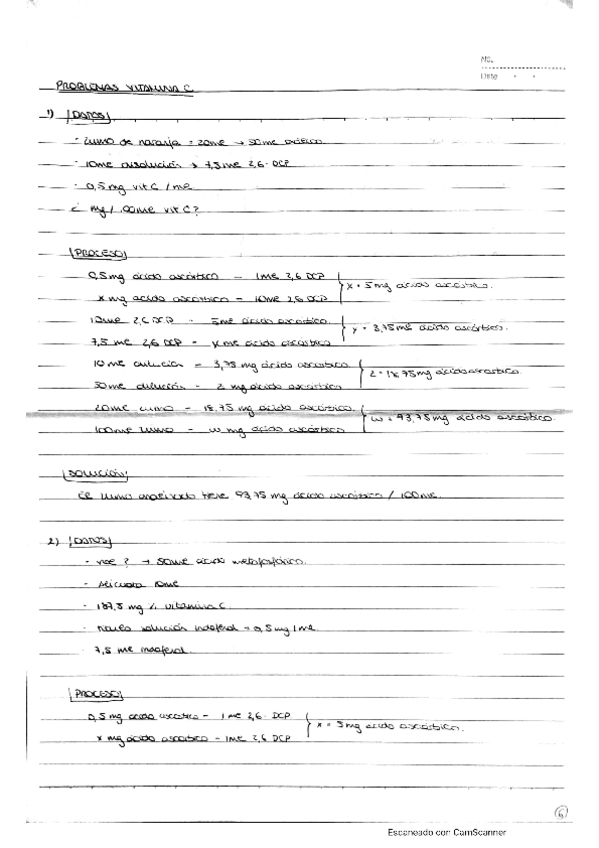 No.
Date
PROBLEMAS VITAMINA C
1) DATOS
· Zumo de naranja = 20ml → 50ml
· 10ml disolución → 7,5ml 2,6-DCP
· 0,5mg vit C / ml
¿ mg / 100ml vit C?
PROCESO
0,5mg ácido ascórbico - 1ml 2,6 DCP
x mg ácido ascórbico - 10ml 2,6 DCP
x = 5mg ácido ascórbico.
10ml 2,6 DCP - 5ml ácido ascórbico
7,5 ml 2,6 DCP - y ml ácido ascórbico
y = 3,75ml ácido ascórbico.
10 ml dilución = 3,75 mg ácido ascórbico
50ml dilución - z mg ácido ascórbico
z = 18,75mg ácido ascórbico.
20ml zumo - 18,75 mg ácido ascórbico
100ml zumo - w mg ácido ascórbico
w = 93,75mg ácido ascórbico.
SOLUCIÓN
El zumo analizado tiene 93,75 mg ácido ascórbico / 100ml.
2) DATOS
- ? → 50ml ácido metafosfórico.
- Alícuota 10ml
- 187,5 mg % vitamina C.
- solución indofenol = 0,5mg/ml
- 7,5 ml indofenol
PROCESO
0,5mg ácido ascórbico - 1ml 2,6-DCP
x mg ácido ascórbico - 1ml 2,6 DCP
x = 5mg ácido ascórbico.
6
Escaneado con CamScanner